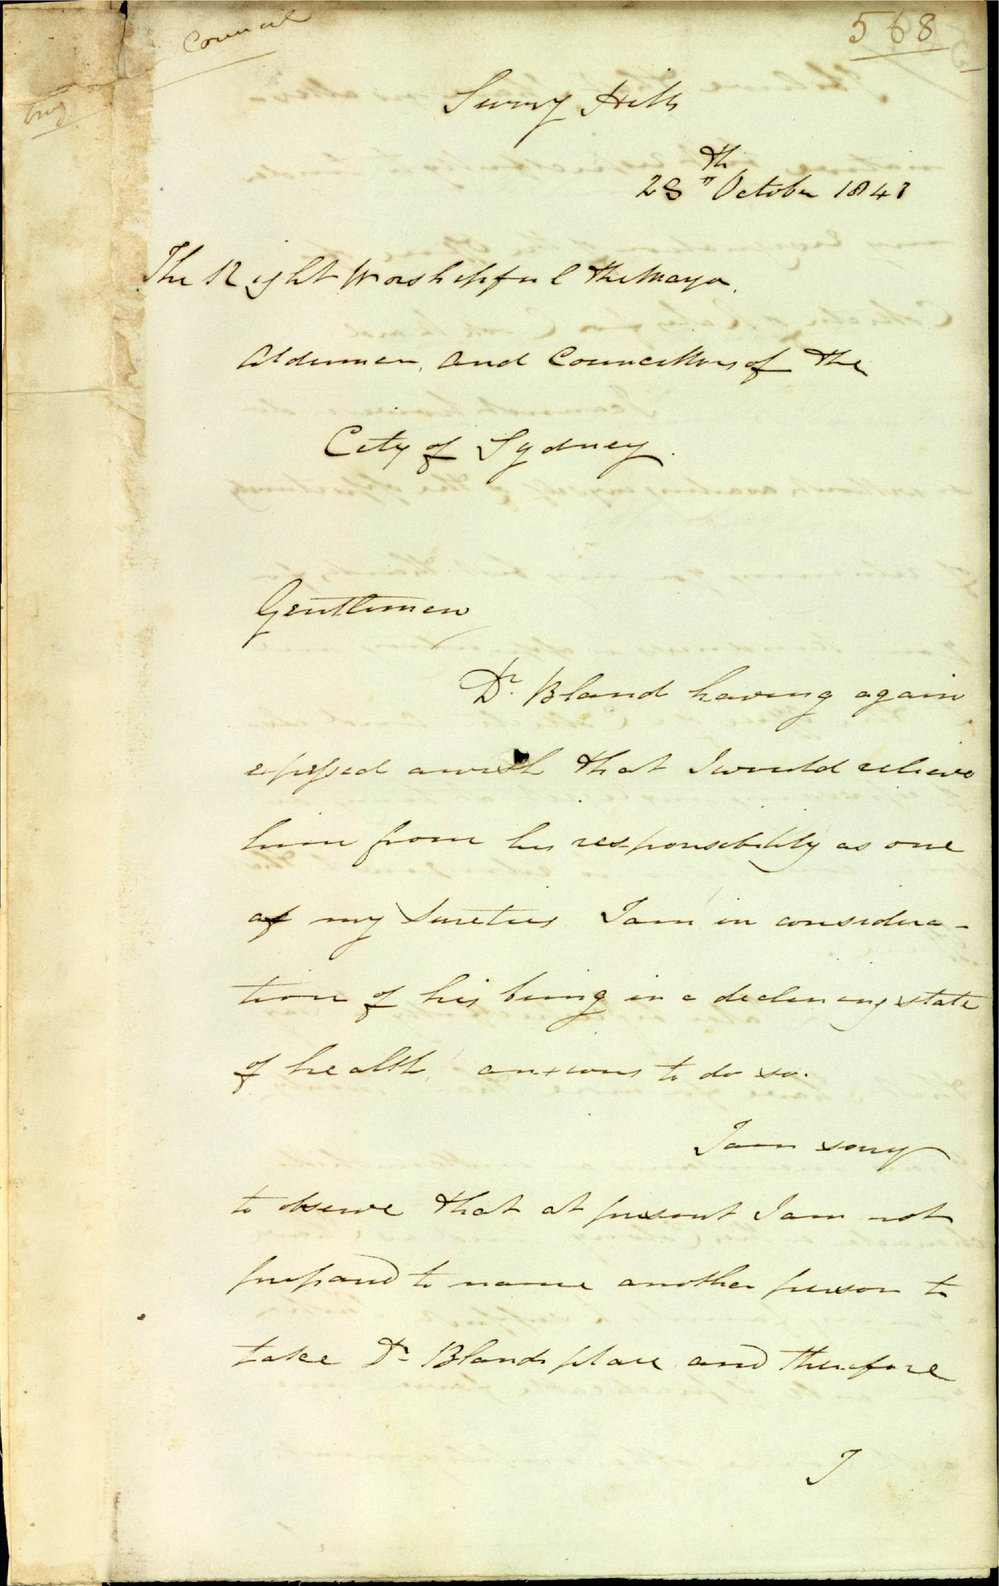 Council
568
Surry Hills
28th October 1848
The Right Worshipful the Mayor,
Aldermen, and Councillors of the
City of Sydney.
Gentlemen
Dr. Bland having again
expressed a wish that I would relieve
him from his responsibility as one
of my Sureties I am in considera-
tion of his being in a declining state
of health, anxious to do so.
I am sorry
to observe that at present I am not
prepared to name another person to
take Dr Blands place and therefore
I